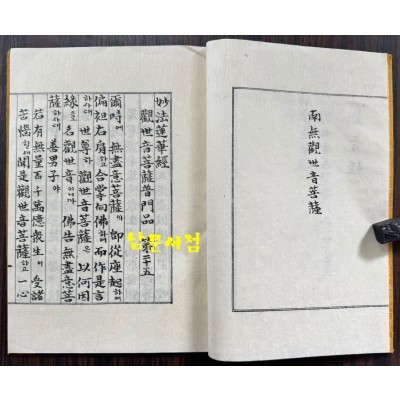 南無觀世音菩薩
妙法蓮華經
觀世音菩薩普門品 第二十五
爾時에 無盡意菩薩이 卽從座起하며
偏袒右肩하고 合掌向佛하며 而作是言
하사대 世尊하 觀世音菩薩은 以何因
緣으로 名觀世音이니까 佛告無盡意菩
薩하사대 善男子야
若有無量百千萬億衆生이 受諸
苦惱 聞是觀世音菩薩하고 一心
남문서점